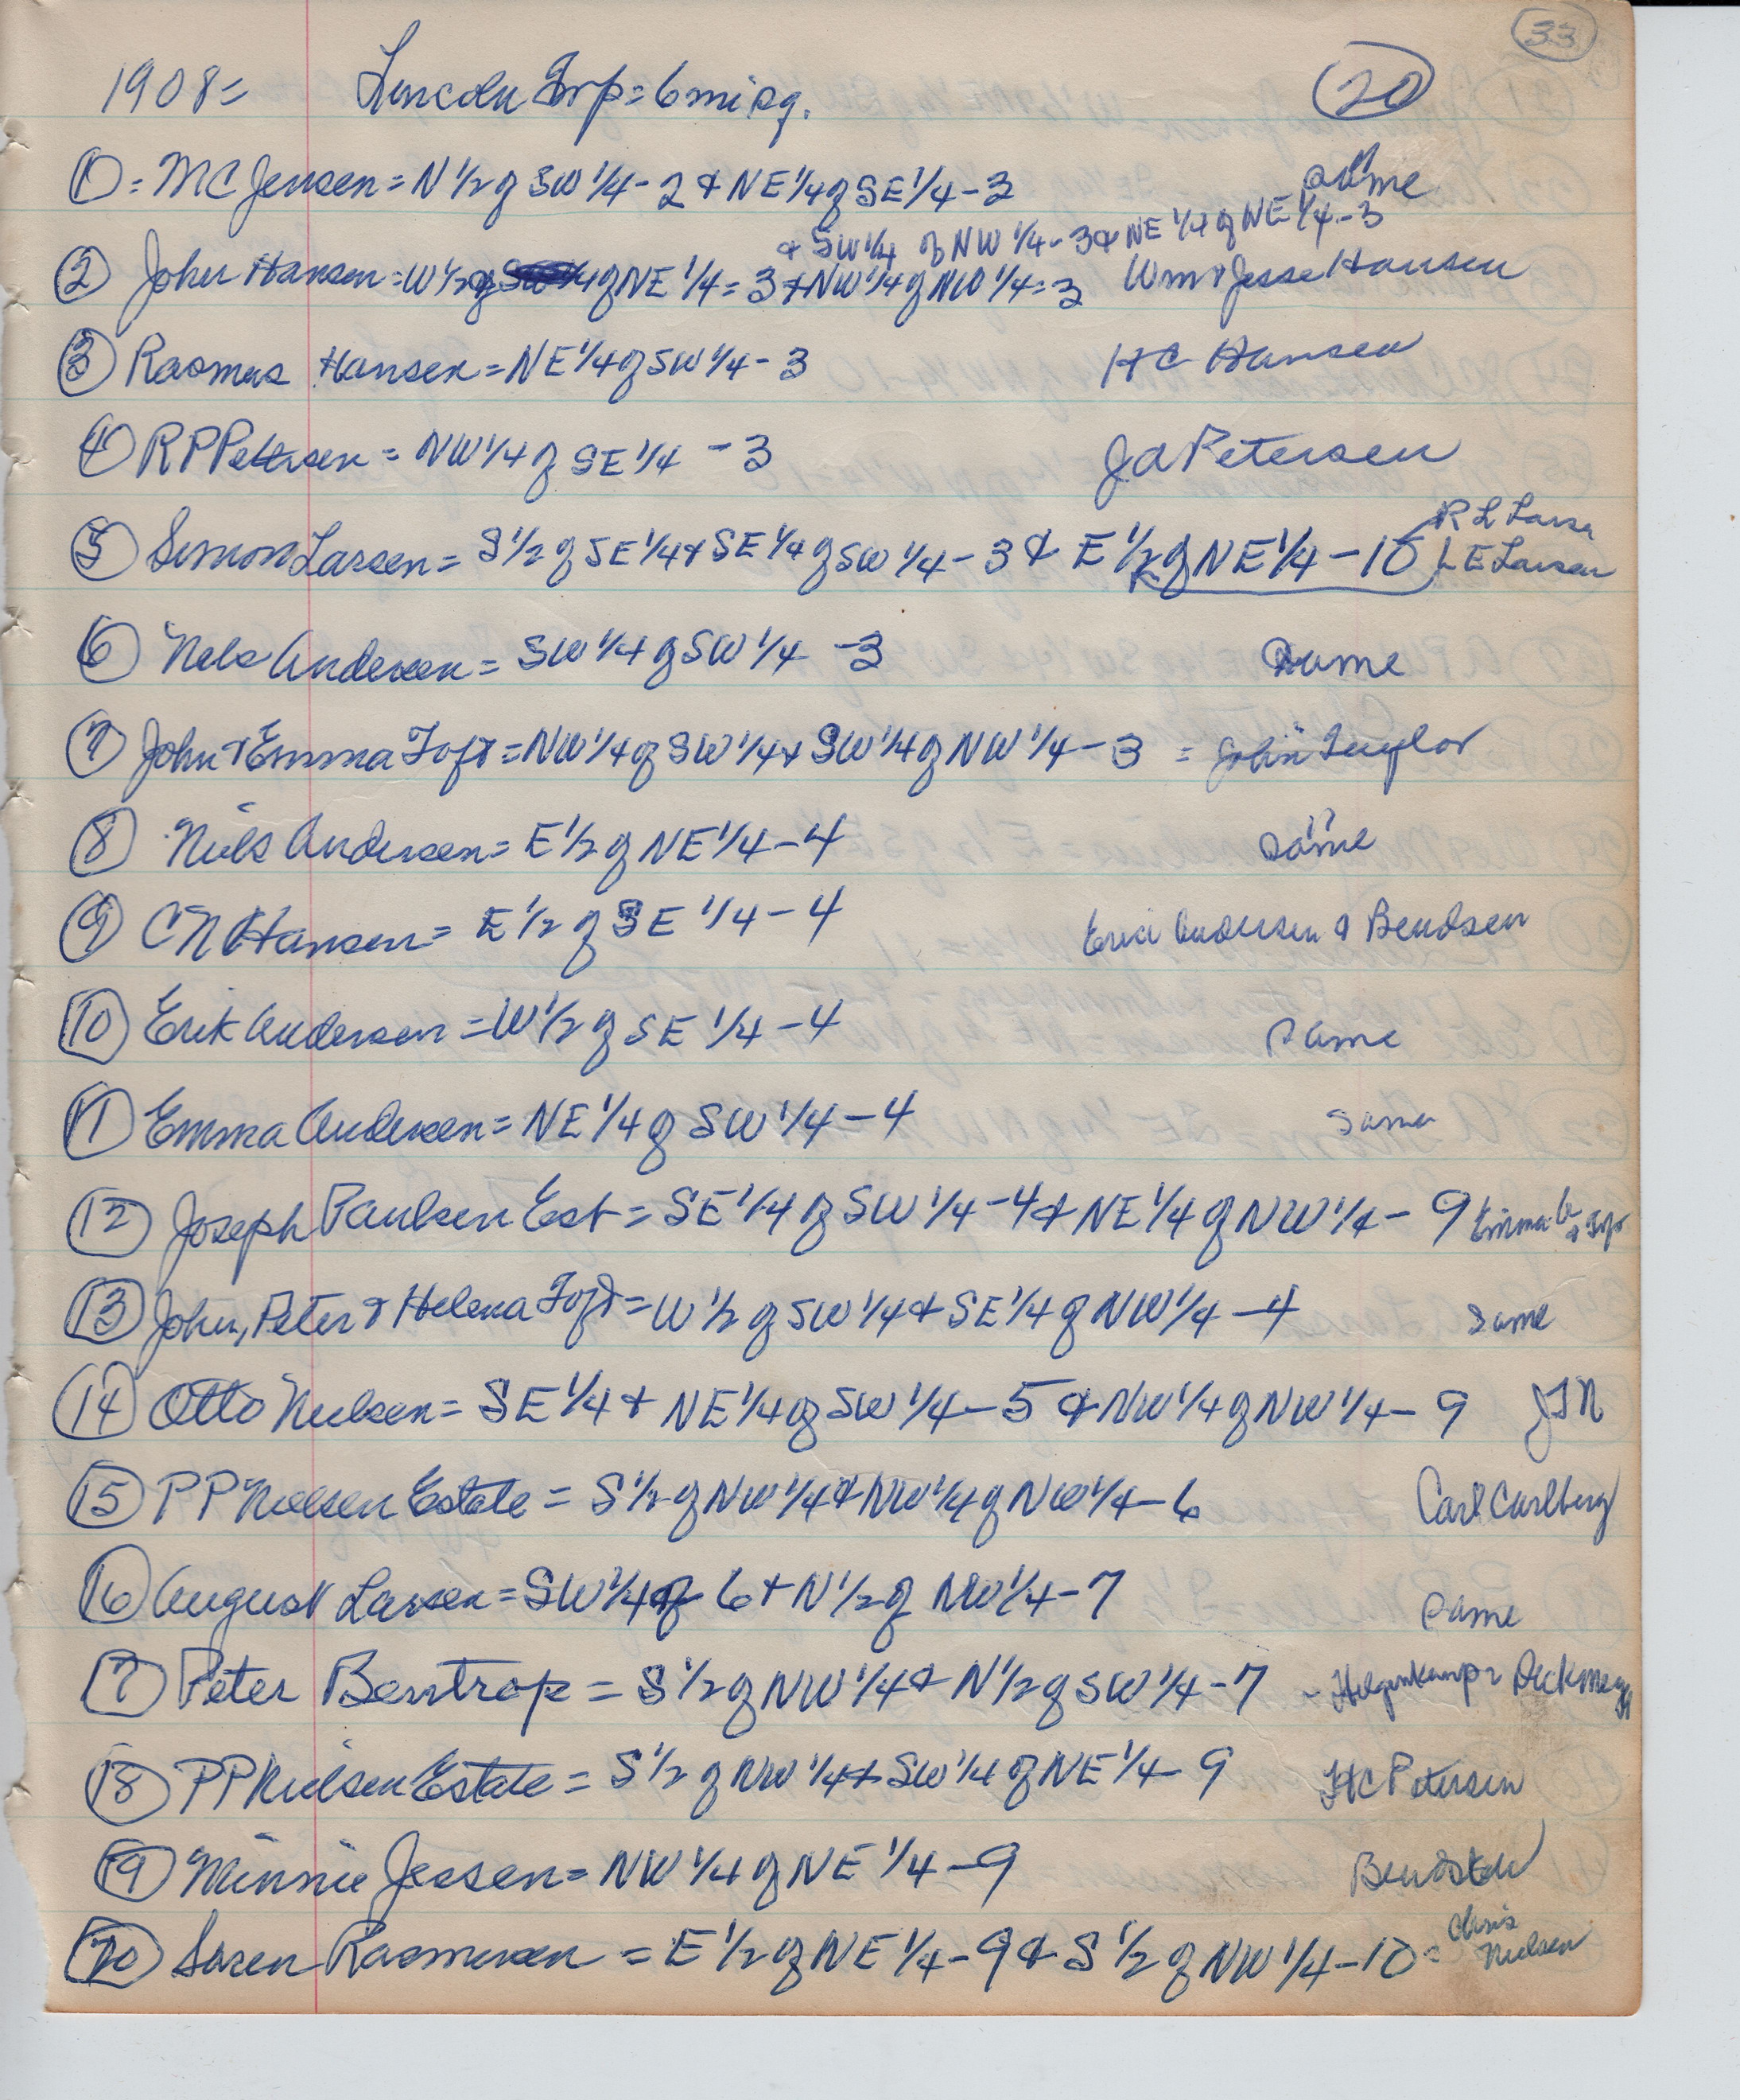 33
1908= Lincoln Twp=6 mi sq. 20
1 = MC Jensen = N 1/2 of SW 1/4 - 2 & NE 1/4 of SE 1/4 - 3 same
& SW 1/4 of NW 1/4 - 3 & NE 1/4 of NE 1/4 - 3
2 John Hansen = W 1/2 of NE 1/4 = 3 & NW 1/4 of NW 1/4 = 3 Wm & Jesse Hansen
3 Rasmus Hansen = NE 1/4 of SW 1/4 - 3 HC Hansen
4 RP Petersen = NW 1/4 of SE 1/4 - 3 JA Petersen
R L Larsen
5 Simon Larsen = S 1/2 of SE 1/4 & SE 1/4 of SW 1/4 - 3 & E 1/2 of NE 1/4 - 10 L E Larsen
6 Nels Andersen = SW 1/4 of SW 1/4 - 3 Same
7 John & Emma Toft = NW 1/4 of SW 1/4 & SW 1/4 of NW 1/4 - 3 = John Taylor
8 Niels Andersen = E 1/2 of NE 1/4 - 4 same
9 CN Hansen = E 1/2 of SE 1/4 - 4 Eric Andersen & Bendsen
10 Erik Andersen = W 1/2 of SE 1/4 - 4 same
11 Emma Andersen = NE 1/4 of SW 1/4 - 4 same
12 Joseph Paulsen Est = SE 1/4 of SW 1/4 - 4 & NE 1/4 of NW 1/4 - 9 Emma
13 John, Peter & Helena Toft = W 1/2 of SW 1/4 & SE 1/4 of NW 1/4 - 4 same
14 Otto Nielsen = SE 1/4 & NE 1/4 of SW 1/4 - 5 & NW 1/4 of NW 1/4 - 9 JTN
15 PP Nielsen Estate = S 1/2 of NW 1/4 & NW 1/4 of NW 1/4 - 6 Carl Carlberg
16 August Larsen = SW 1/4 of 6 & N 1/2 of NW 1/4 - 7 same
17 Peter Bentrop = S 1/2 of NW 1/4 & N 1/2 of SW 1/4 - 7 - Hilgenkamp
18 PP Nielsen Estate = S 1/2 of NW 1/4 & SW 1/4 of NE 1/4 - 9 HC Petersen
19 Minnie Jessen = NW 1/4 of NE 1/4 - 9 Bendsten
20 Soren Rasmussen = E 1/2 of NE 1/4 - 9 & S 1/2 of NW 1/4 - 10 = Chris
Nielsen